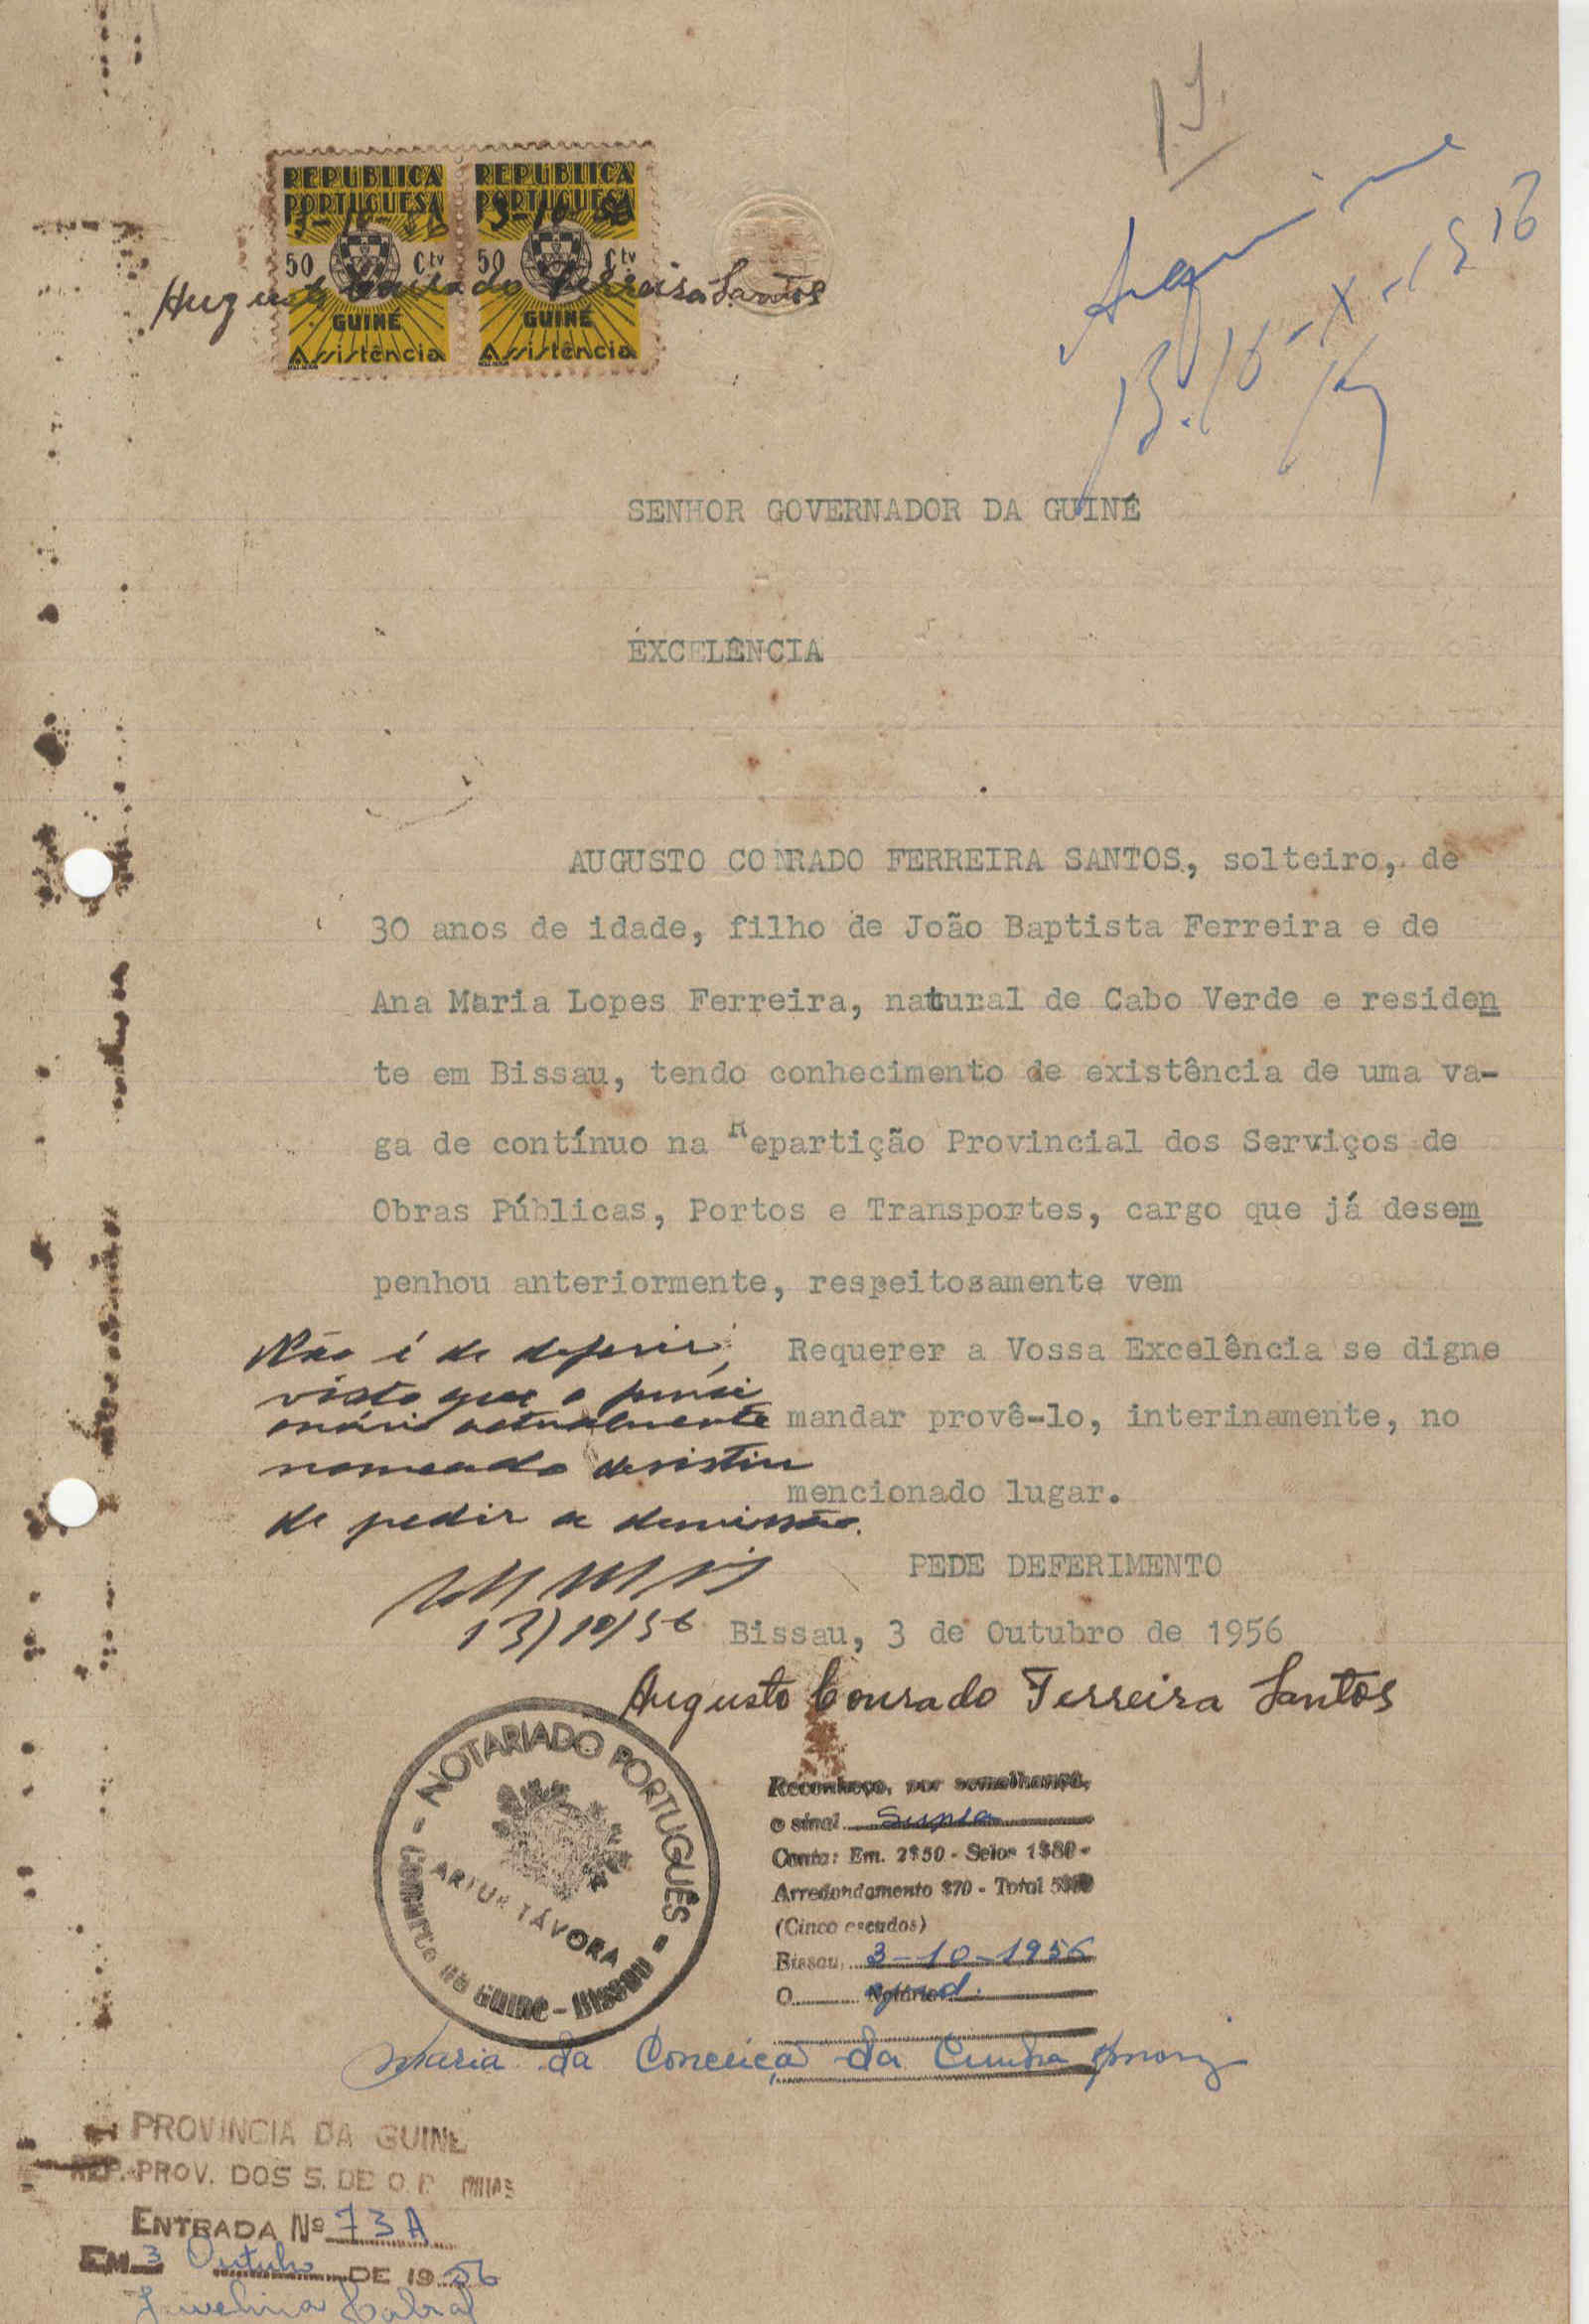 REPUBLICA PORTUGUESA REPUBLICA PORTUGUESA
3-10-56 3-10-56
50 Ctv 50 Ctv
Augusto Conrado Ferreira Santos
GUINÉ GUINÉ
Assistência Assistência
SENHOR GOVERNADOR DA GUINÉ
EXCELÊNCIA
AUGUSTO CONRADO FERREIRA SANTOS, solteiro, de
30 anos de idade, filho de João Baptista Ferreira e de
Ana Maria Lopes Ferreira, natural de Cabo Verde e residen
te em Bissau, tendo conhecimento de existência de uma va-
ga de contínuo na Repartição Provincial dos Serviços de
Obras Públicas, Portos e Transportes, cargo que já desem
penhou anteriormente, respeitosamente vem
Requerer a Vossa Excelência se digne
mandar provê-lo, interinamente, no
mencionado lugar.
Não é de deferir,
visto que o funci
onário actualmente
nomeado desistiu
de pedir a demissão.
13/10/56
PEDE DEFERIMENTO
Bissau, 3 de Outubro de 1956
Augusto Conrado Ferreira Santos
- NOTARIADO PORTUGUÊS -
ARTUR TÁVORA
Comarca da Guiné - Bissau
Reconheço, por semelhança,
o sinal supra
Conta: Em. 2$50 - Selos 1$80 -
Arredondamento $70 - Total 5$00
(Cinco escudos)
Bissau, 3-10-1956
O ajud.
Maria da Conceição da Cunha
PROVINCIA DA GUINÉ
REP. PROV. DOS S. DE O. P.
ENTRADA Nº 73 A
EM 3 Outubro DE 1956
Cabral